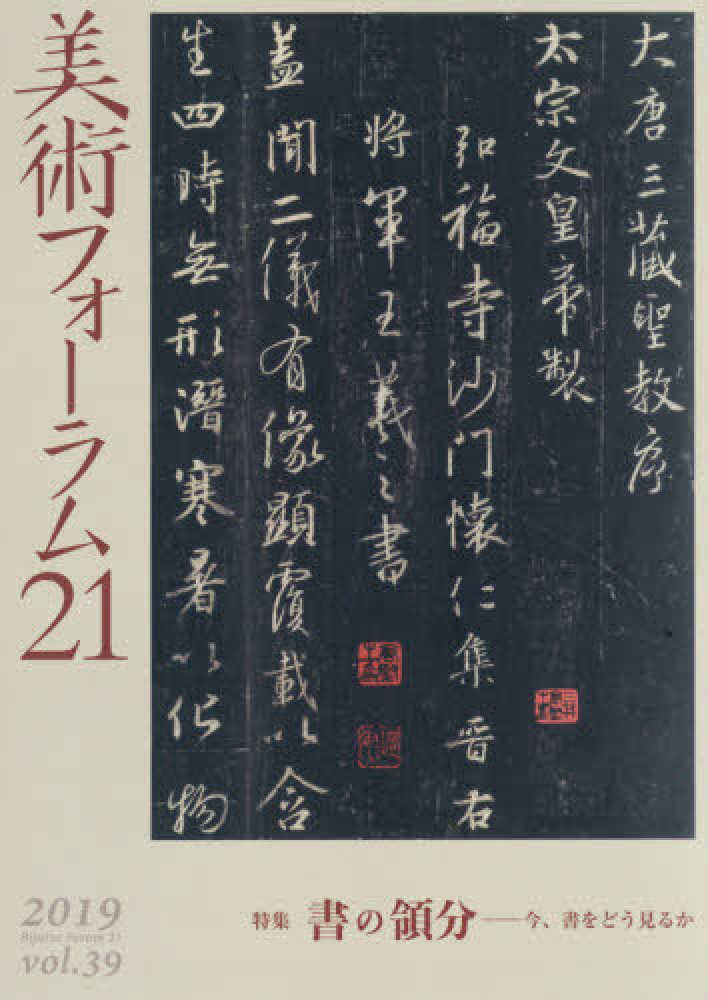 美術フォーラム21
大唐三蔵聖教序
太宗文皇帝製
弘福寺沙門懐仁集晋右
将軍王羲之書
蓋聞二儀有像顕覆載以含
生四時無形潜寒暑以化物
2019
Bijutsu Forum 21
vol.39
特集 書の領分――今、書をどう見るか